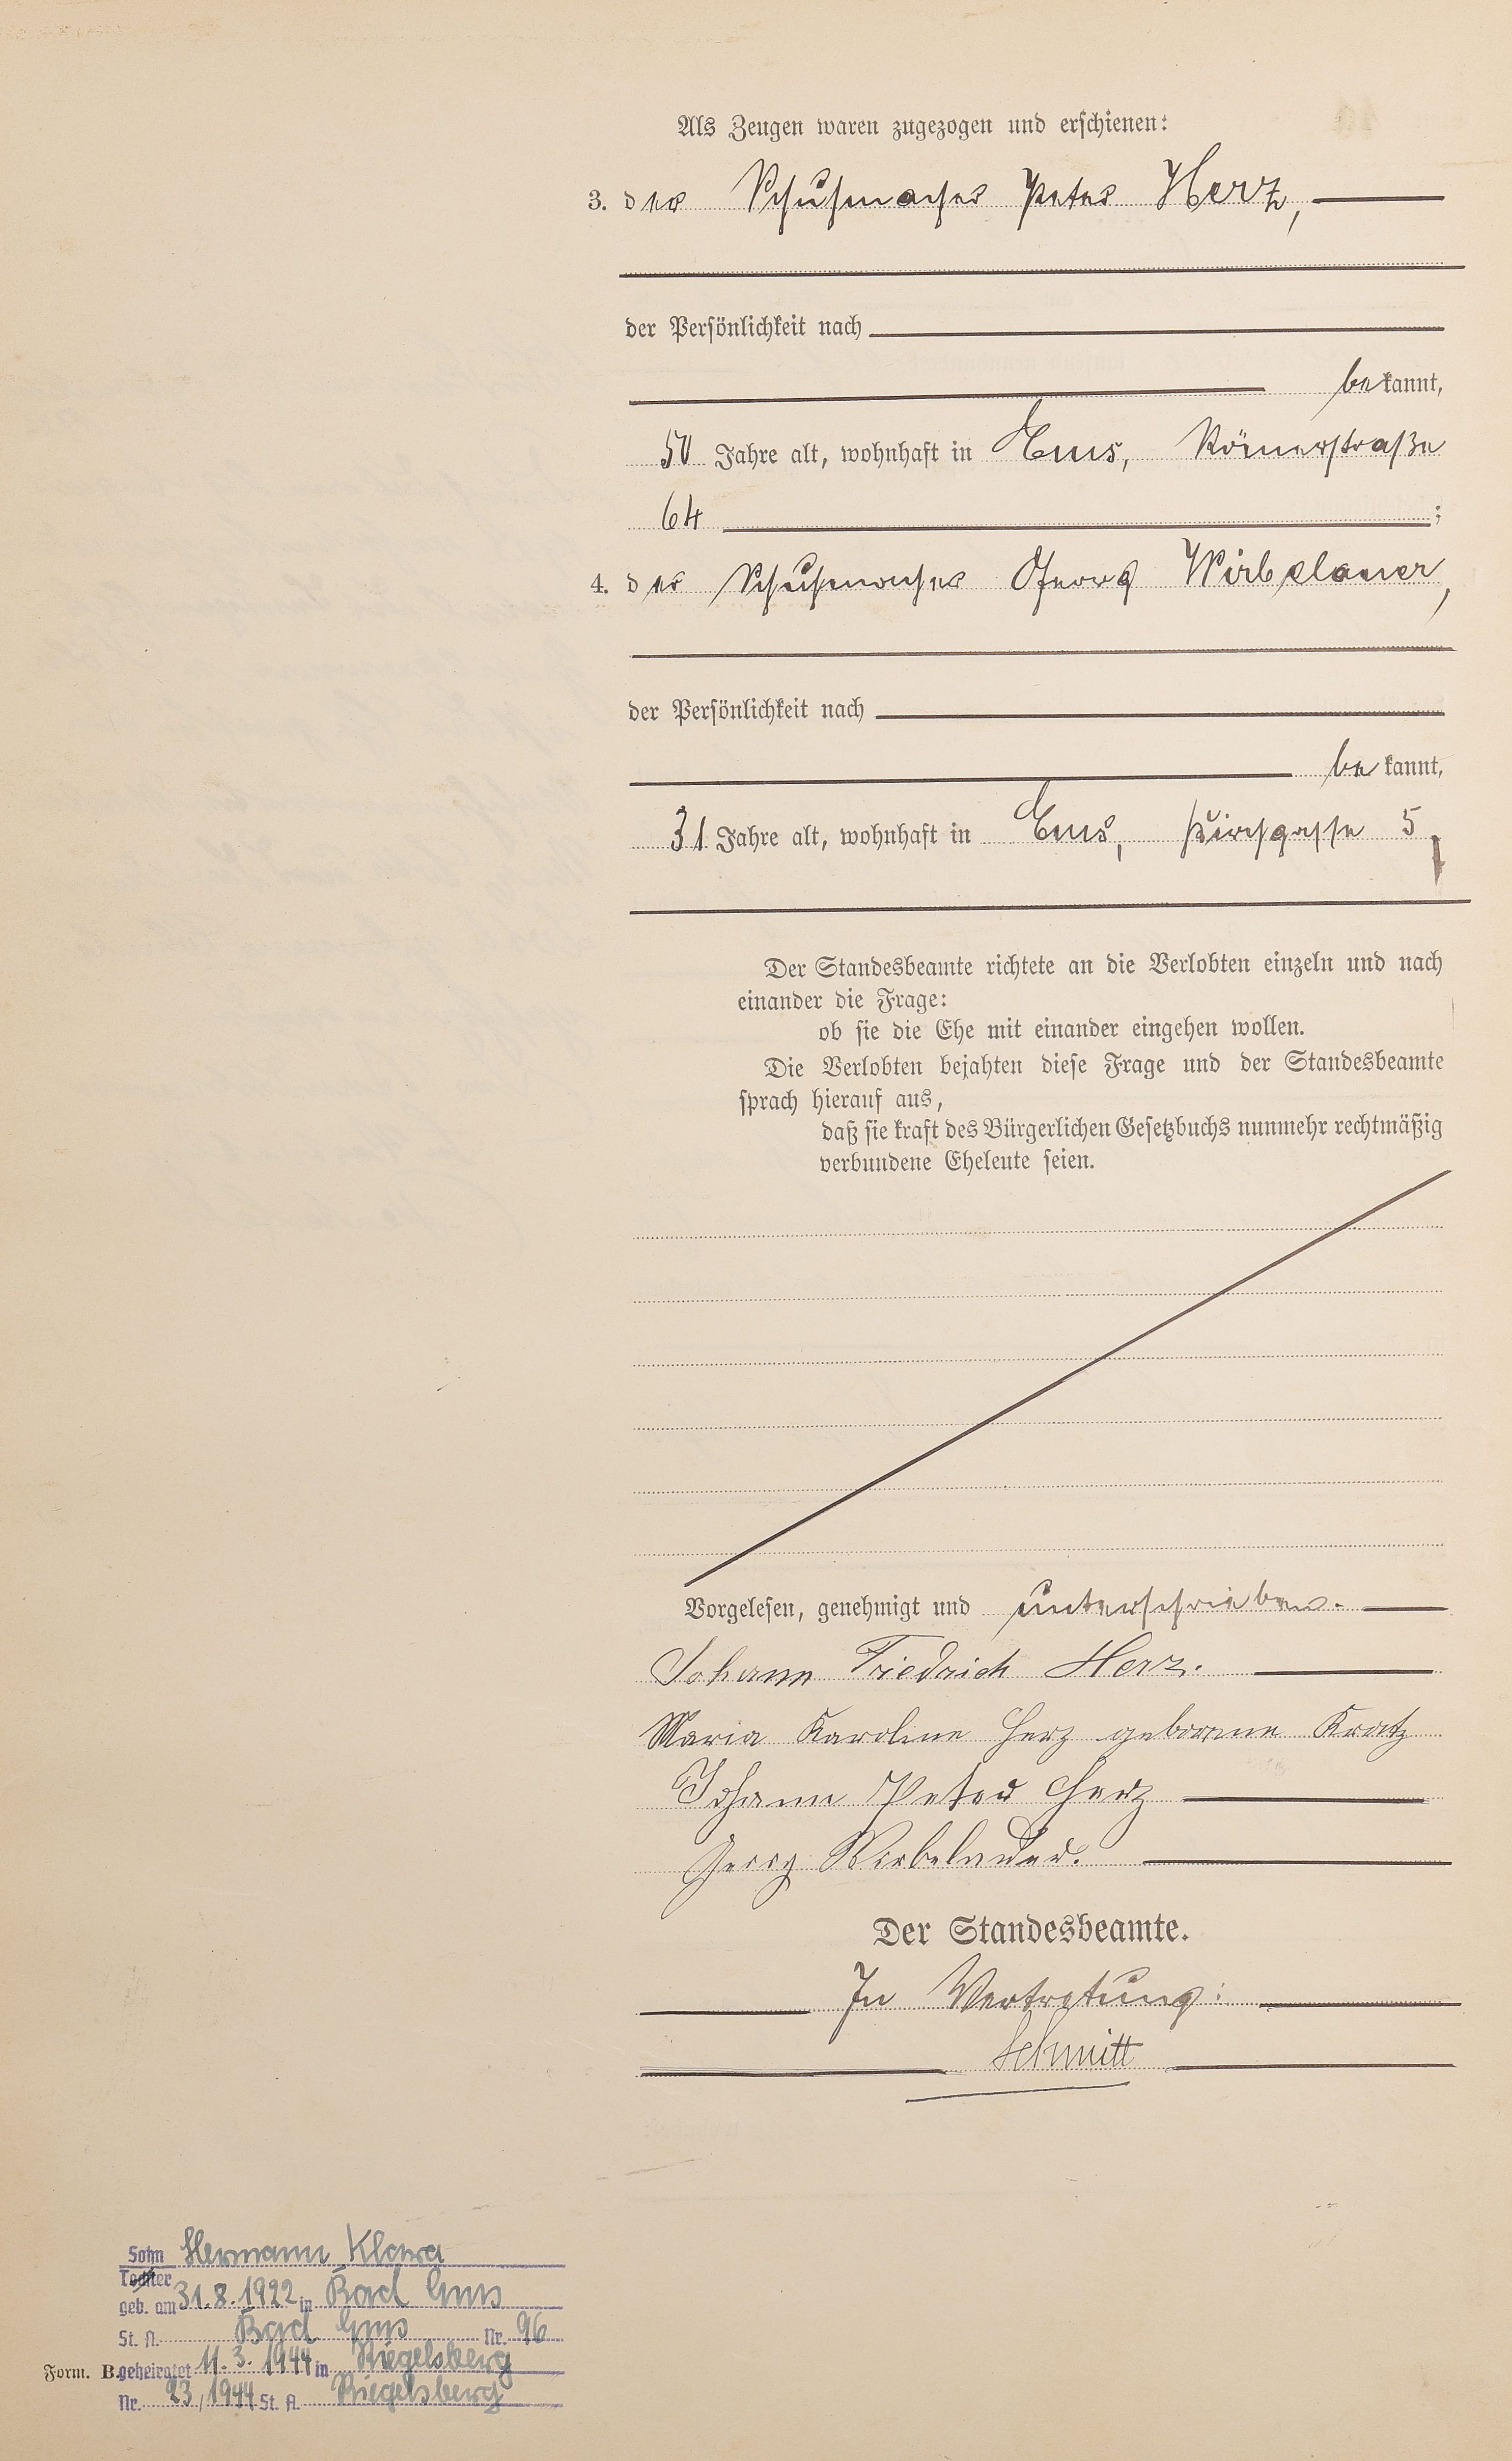 Als Zeugen waren zugezogen und erschienen:
3. der Schuhmacher Peter Herz,
der Persönlichkeit nach
bekannt,
50 Jahre alt, wohnhaft in Ems, Römerstraße
64 ;
4. der Schuhmacher Georg Wirbelauer,
der Persönlichkeit nach
bekannt,
31 Jahre alt, wohnhaft in Ems, Kirchgasse 5
Der Standesbeamte richtete an die Verlobten einzeln und nach
einander die Frage:
ob sie die Ehe mit einander eingehen wollen.
Die Verlobten bejahten diese Frage und der Standesbeamte
sprach hierauf aus,
daß sie kraft des Bürgerlichen Gesetzbuchs nunmehr rechtmäßig
verbundene Eheleute seien.
Vorgelesen, genehmigt und unterschrieben.
Johann Friedrich Herz.
Maria Karoline Herz geborene Kratz
Johann Peter Herz
Georg Wirbelauer.
Der Standesbeamte.
In Vertretung:
Schmitt
Sohn Hermann Klara
Tochter
geb. am 31.8.1922 in Bad Ems
St. A. Bad Ems Nr. 96
Form. B. geheiratet 11.3.1944 in Riegelsberg
Nr. 23/1944 St. A. Riegelsberg